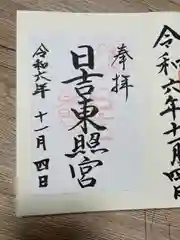 奉拝
日吉東照宮
令和六年
十一月四日
令和六年十一月四日